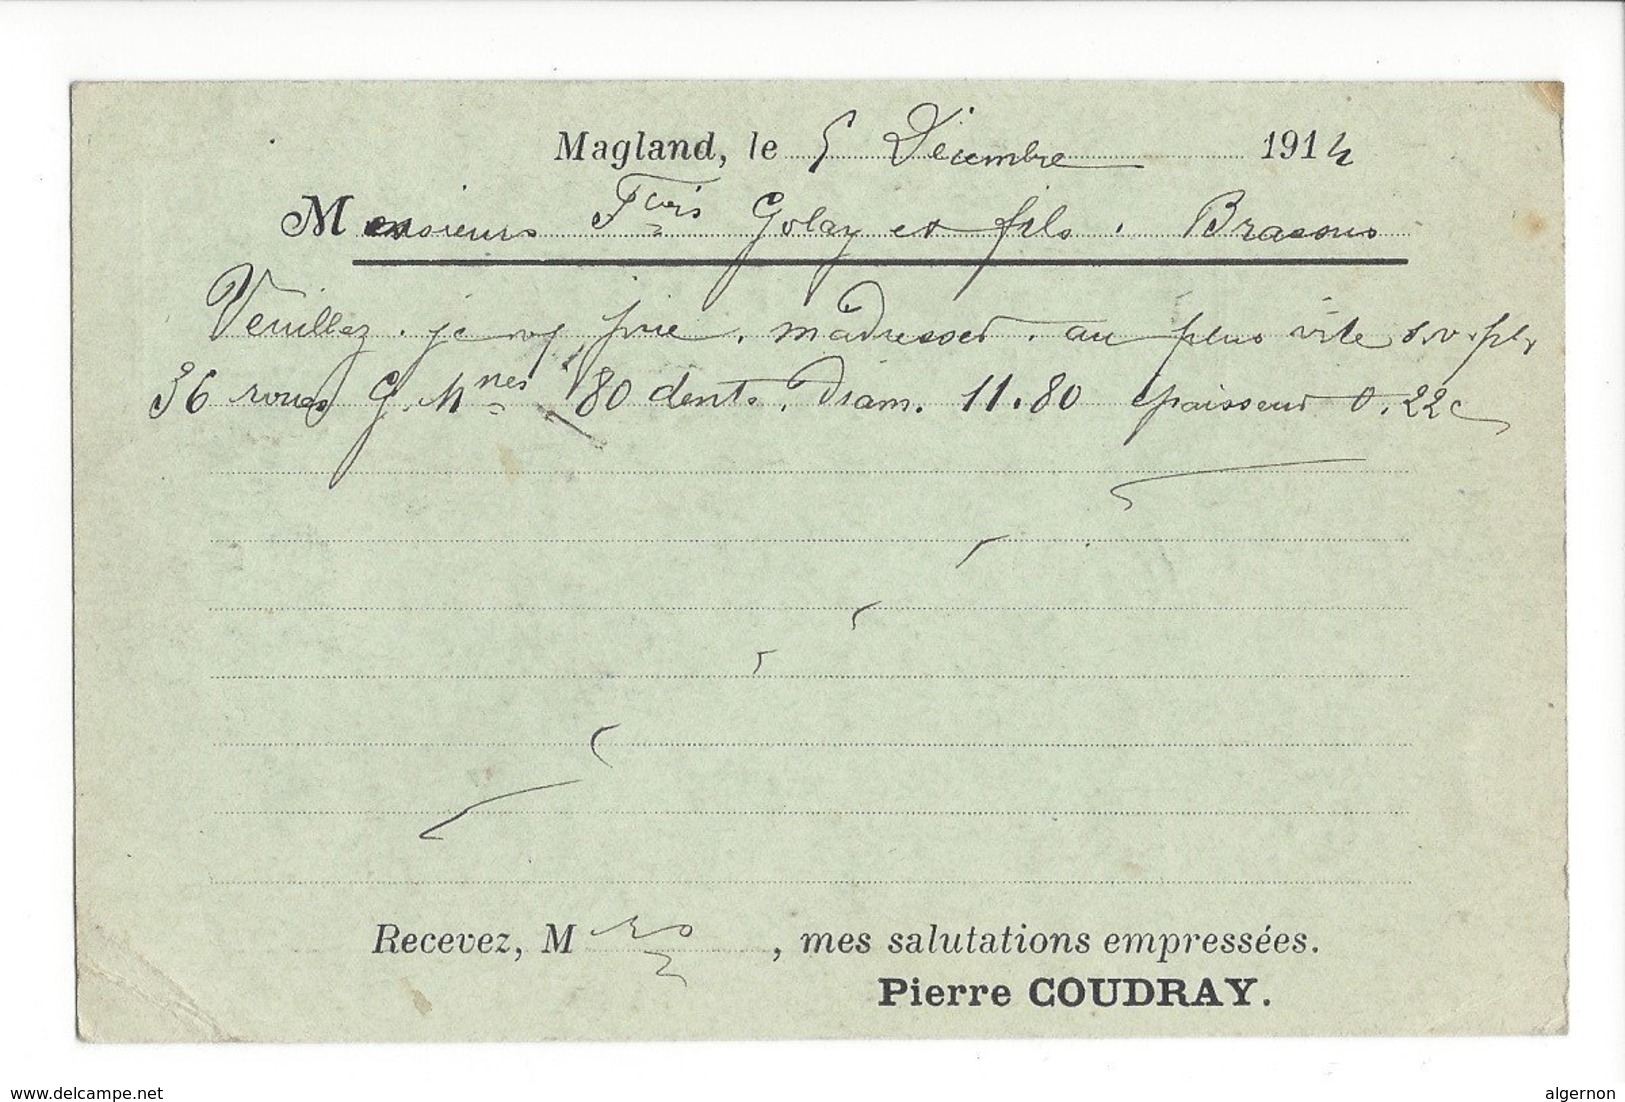 Magland, le 5 Décembre 1914
Messieurs Fçois Golay et fils. Brassus
Veuillez. je vs prie. m'adresser. au plus vite s.v.pl.
36 roues G. Mnes 80 dents. Diam. 11.80 épaisseur 0.22c
Recevez, M , mes salutations empressées.
Pierre COUDRAY.
www.delcampe.net
algernon